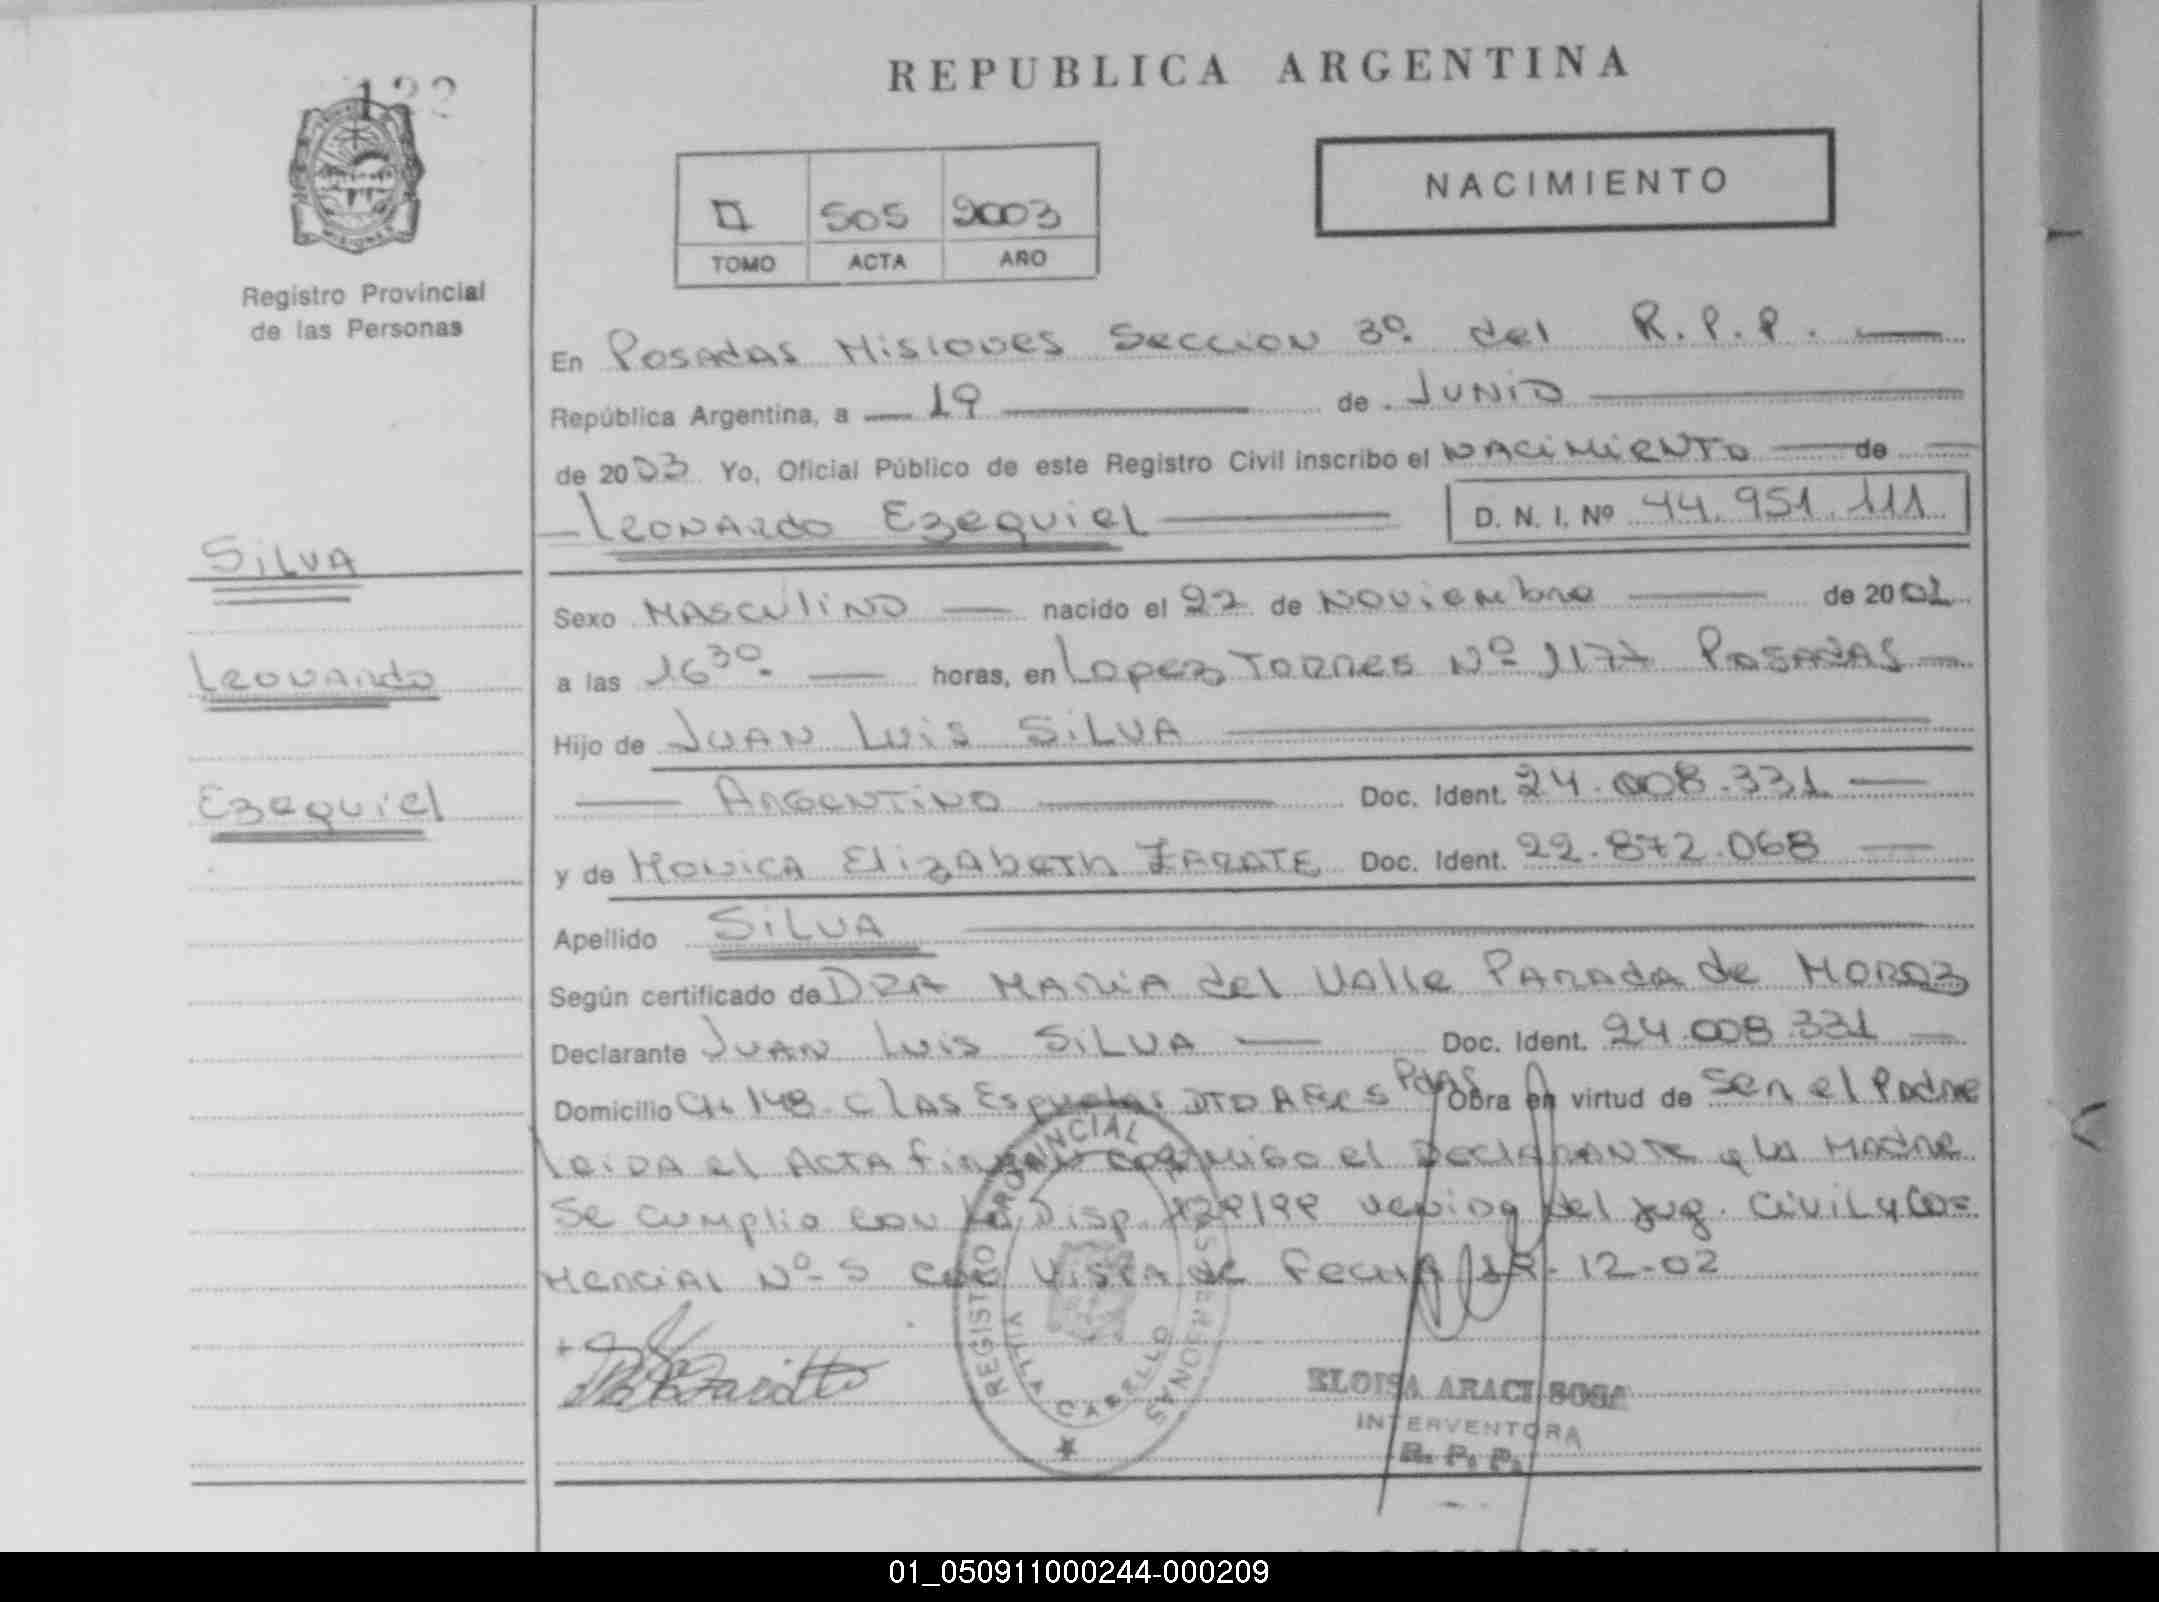 122
REPUBLICA ARGENTINA
MISIONES
Registro Provincial
de las Personas
II 505 2003
TOMO ACTA AÑO
NACIMIENTO
En Posadas Misiones Seccion 3º del R.P.P.
República Argentina, a 19 de Junio
de 2003 Yo, Oficial Público de este Registro Civil inscribo el Nacimiento de
Leonardo Ezequiel D. N. I. Nº 44.951.111
Silva
Leonardo
Ezequiel
Sexo Masculino nacido el 22 de Noviembre de 2002
a las 16 30 horas, en Lopez Torres Nº 1177 Posadas
Hijo de Juan Luis Silva
Argentino Doc. Ident. 24.008.331
y de Monica Elizabeth Zarate Doc. Ident. 22.872.068
Apellido Silva
Según certificado de Dra Maria del Valle Parada de Moroz
Declarante Juan Luis Silva Doc. Ident. 24.008.331
Domicilio Ch 148 C Las Espuelas Pdas Obra en virtud de Ser el Padre
Leida el Acta firman conmigo el Declarante y la Madre
Se cumplio con la Disp. del Juz. Civil y Co=
mercial Nº 5 con Vista de Fecha 12-02
REGISTRO PROVINCIAL DE LAS PERSONAS
VILLA CABELLO
ELOISA ARACI SOSA
INTERVENTORA
R. P. P.
01_050911000244-000209